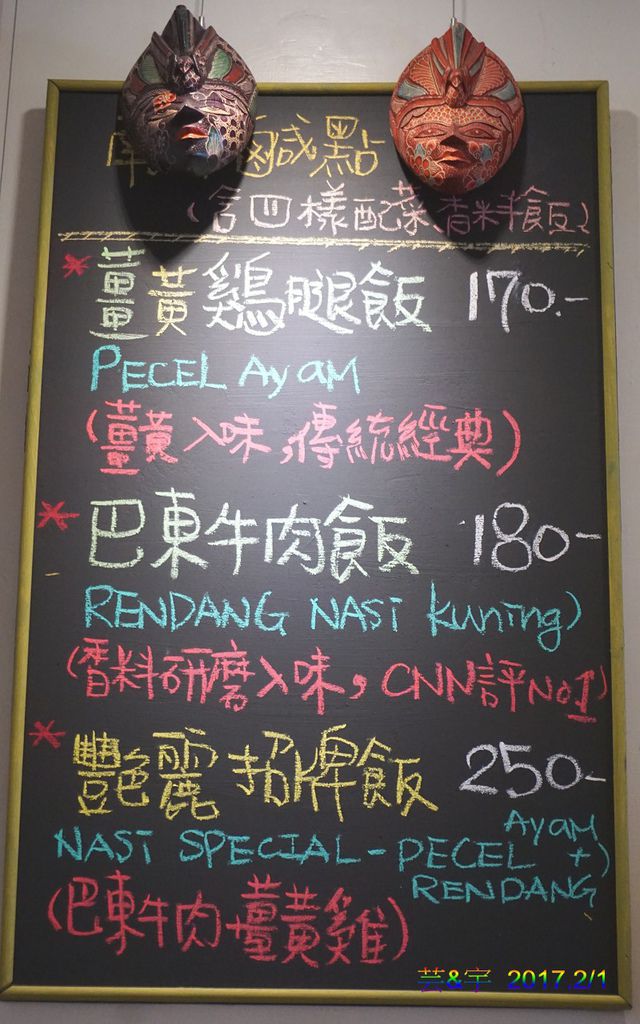 鹹點
(含四樣配菜,香料飯)
*薑黃鷄腿飯 170.-
PECEL AyaM
(薑黃入味,傳統經典)
*巴東牛肉飯 180-
RENDANG NASi kuning)
(香料研磨入味,CNN評No1)
*豔麗招牌飯 250-
NASi SPECIAL-PECEL AyaM +)
RENDANG
(巴東牛肉+薑黃雞)
芸&宇 2017.2/1